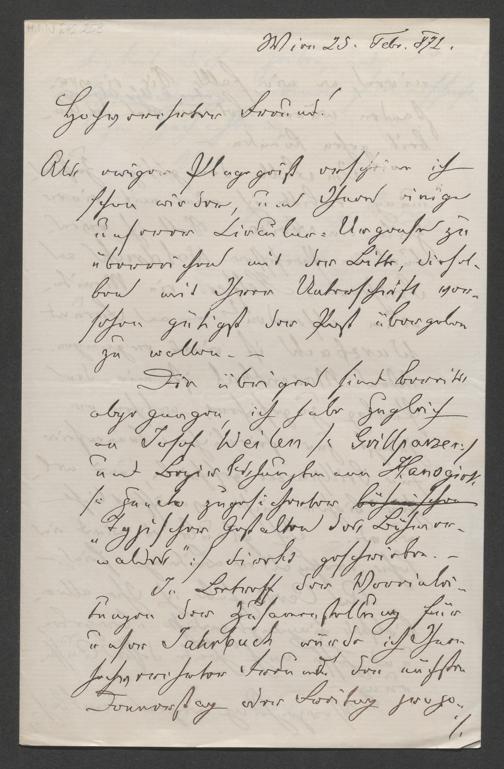 Wien 25. Febr. 871.
Hochverehrter Freund!
Als ewiger Plagegeist erscheine ich
schon wieder, um Ihnen einige
unserer Circular-Urgense zu
überreichen mit der Bitte, diesel-
ben mit Ihrer Unterschrift ver-
sehen gütigst der Post übergeben
zu wollen. —
Die übrigen sind bereits
abgegangen ich habe zugleich
an Josef Weilen /: Grillparzer :/
und
/: zugesicherter böhmischen
"Typischer Gestalten des Böhmer-
waldes" :/ direkt geschrieben. —
In Betreff der Vorarbei-
tungen der Zusammenstellung für
unser Jahrbuch würde ich Ihnen
hochverehrter Freund den nächsten
Donnerstag oder Freitag propo-
./.